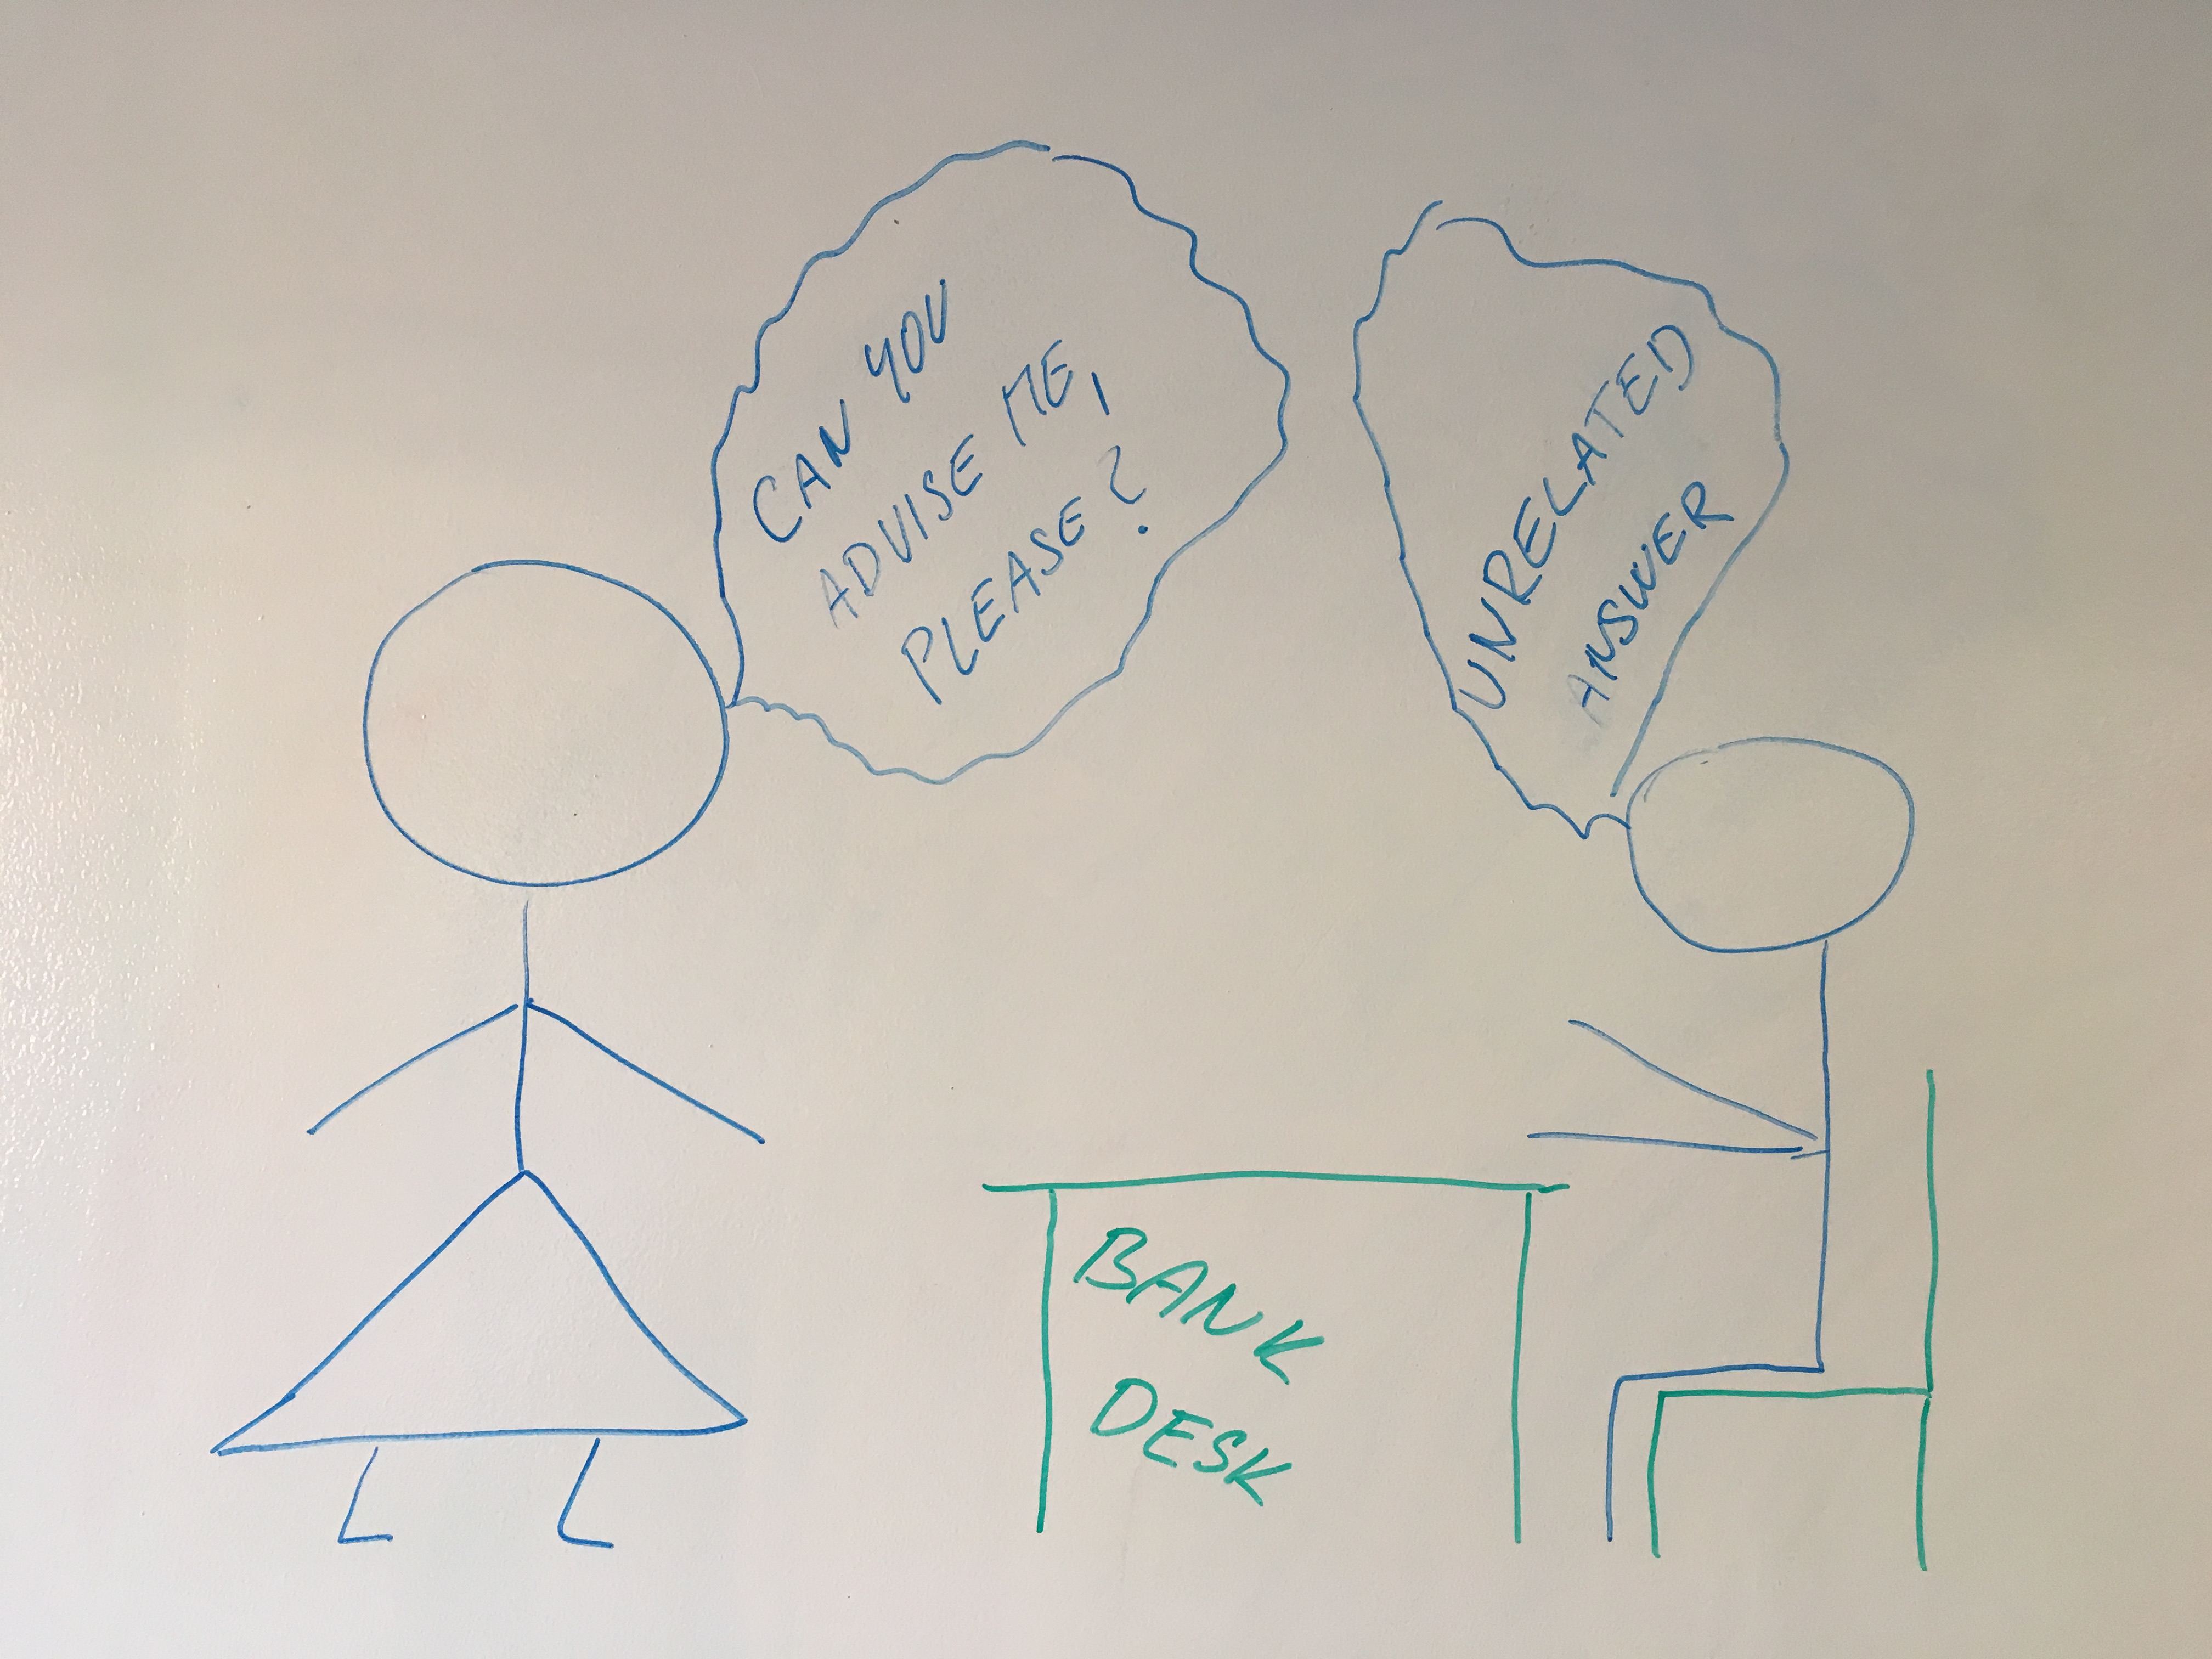 CAN YOU
ADVISE ME,
PLEASE?
UNRELATED
ANSWER
BANK
DESK